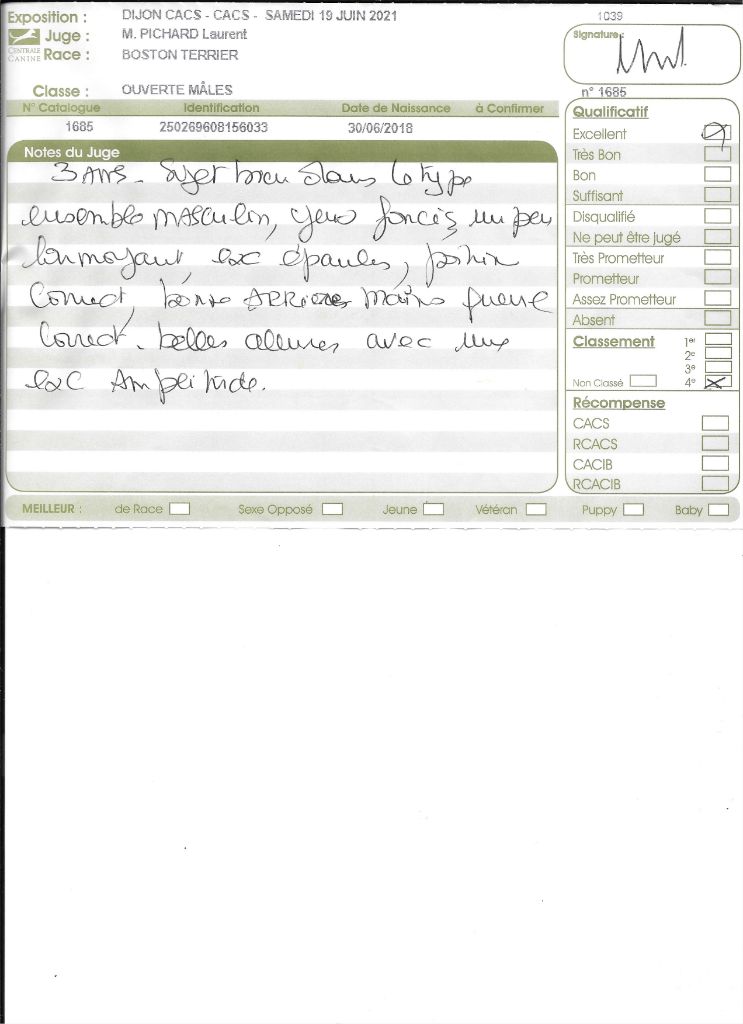 Exposition : DIJON CACS - CACS - SAMEDI 19 JUIN 2021
1039
CENTRALE CANINE
Juge : M. PICHARD Laurent
Race : BOSTON TERRIER
Signature :
Classe : OUVERTE MÂLES
n° 1685
N° Catalogue Identification Date de Naissance à Confirmer
1685 250269608156033 30/06/2018
Notes du Juge
3 ANS - Sujet bien dans le type
ensemble MASCULIN, yeux foncés un peu
larmoyant exc épaules, poitrine
correct, bonne ARRIERE MAIN queue
correct - belles allures avec une
exc Amplitude.
Qualificatif
Excellent
Très Bon
Bon
Suffisant
Disqualifié
Ne peut être jugé
Très Prometteur
Prometteur
Assez Prometteur
Absent
Classement 1er
2e
3e
Non Classé 4e
Récompense
CACS
RCACS
CACIB
RCACIB
MEILLEUR : de Race Sexe Opposé Jeune Vétéran Puppy Baby